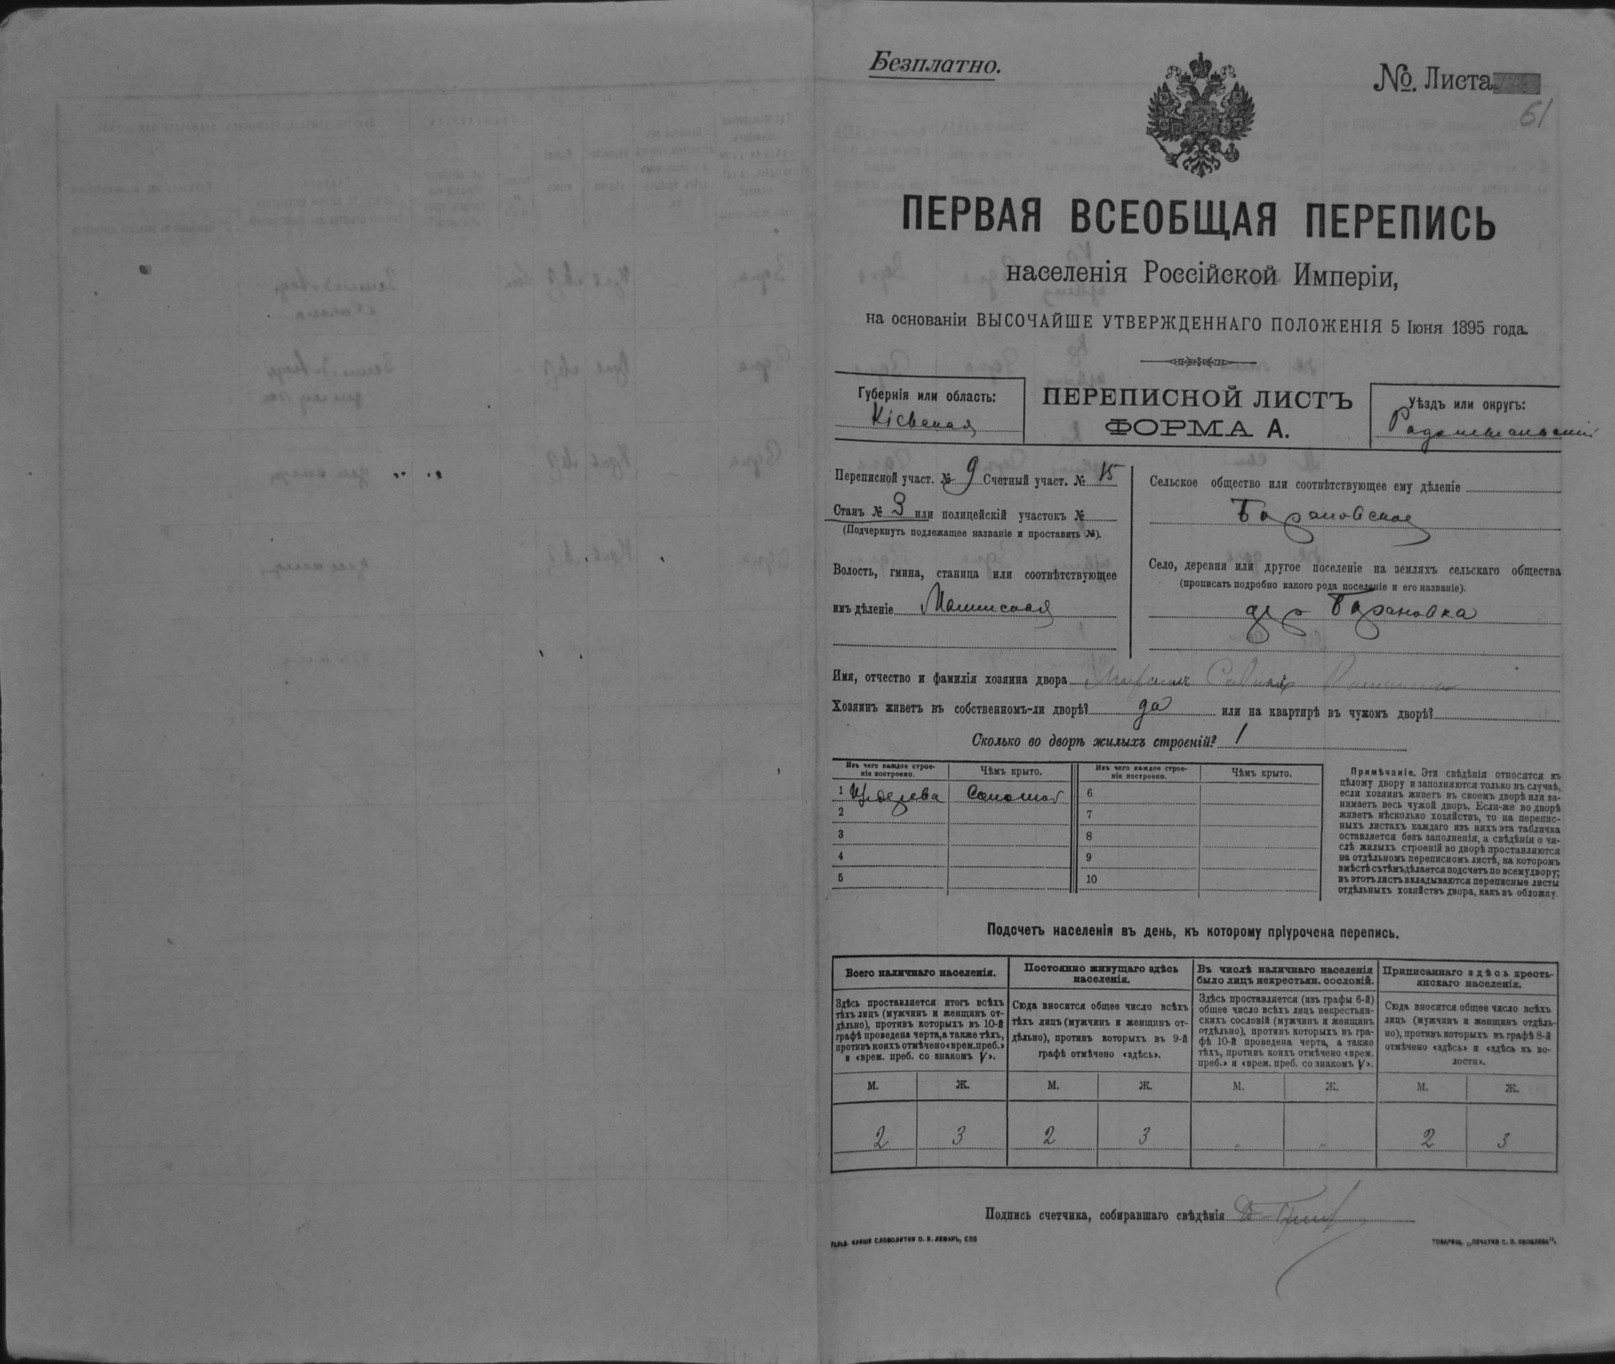 Безплатно.
№. Листа
61
ПЕРВАЯ ВСЕОБЩАЯ ПЕРЕПИСЬ
населенія Россійской Имперіи,
на основаніи ВЫСОЧАЙШЕ УТВЕРЖДЕННАГО ПОЛОЖЕНІЯ 5 Іюня 1895 года.
Губернія или область:
Кіевская
ПЕРЕПИСНОЙ ЛИСТЪ
ФОРМА А.
Уѣздъ или округъ:
Радомысльскій
Переписной участ. № 9 Счетный участ. № 15
Станъ № 3 или полицейскій участокъ №
(Подчеркнуть подлежащее названіе и проставить №).
Волость, гмина, станица или соотвѣтствующее
имъ дѣленіе Малинская
Сельское общество или соотвѣтствующее ему дѣленіе
Барановское
Село, деревня или другое поселеніе на земляхъ сельскаго общества
(прописать подробно какого рода поселеніе и его названіе).
дер Барановка
Имя, отчество и фамилія хозяина двора
Хозяинъ живетъ въ собственномъ-ли дворѣ? да или на квартирѣ въ чужомъ дворѣ?
Сколько во дворѣ жилыхъ строеній? 1
Изъ чего каждое строе-
ніе построено.
Чѣмъ крыто.
1 Издерева Соломой
2
3
4
5
Изъ чего каждое строе-
ніе построено.
Чѣмъ крыто.
6
7
8
9
10
Примѣчаніе. Эти свѣдѣнія относятся къ
цѣлому двору и заполняются только въ случаѣ,
если хозяинъ живетъ въ своемъ дворѣ или за-
нимаетъ весь чужой дворъ. Если-же во дворѣ
живетъ нѣсколько хозяйствъ, то на перепис-
ныхъ листахъ каждаго изъ нихъ эта табличка
оставляется безъ заполненія, а свѣдѣнія о чи-
слѣ жилыхъ строеній во дворѣ проставляются
на отдѣльномъ переписномъ листѣ, на которомъ
вмѣстѣ съ тѣмъ дѣлается подсчетъ по всему двору;
въ этотъ листъ вкладываются переписные листы
отдѣльныхъ хозяйствъ двора, какъ въ обложку.
Подсчетъ населенія въ день, къ которому пріурочена перепись.
Всего наличнаго населенія.
Здѣсь проставляется итогъ всѣхъ
тѣхъ лицъ (мужчинъ и женщинъ от-
дѣльно), противъ которыхъ въ 10-й
графѣ проведена черта, а также тѣхъ,
противъ коихъ отмѣчено «врем. преб.»
и «врем. преб. со знакомъ V».
М. Ж.
2 3
Постоянно живущаго здѣсь
населенія.
Сюда вносится общее число всѣхъ
тѣхъ лицъ (мужчинъ и женщинъ от-
дѣльно), противъ которыхъ въ 9-й
графѣ отмѣчено «здѣсь».
М. Ж.
2 3
Въ числѣ наличнаго населенія
было лицъ некрестьян. сословій.
Здѣсь проставляется (изъ графы 6-й)
общее число всѣхъ лицъ некрестьян-
скихъ сословій (мужчинъ и женщинъ
отдѣльно), противъ которыхъ въ гра-
фѣ 10-й проведена черта, а также
тѣхъ, противъ коихъ отмѣчено «врем.
преб.» и «врем. преб. со знакомъ V».
М. Ж.
" "
Приписаннаго здѣсь кресть-
янскаго населенія.
Сюда вносится общее число всѣхъ
лицъ (мужчинъ и женщинъ отдѣль-
но), противъ которыхъ въ графѣ 8-й
отмѣчено «здѣсь» и «здѣсь къ во-
лости».
М. Ж.
2 3
Подпись счетчика, собиравшаго свѣдѣнія
ГАЛЬВ. КЛИШЕ СЛОВОЛИТНИ О. И. ЛЕМАНЪ, СПБ
ТОВАРИЩ. „ПЕЧАТНЯ С. П. ЯКОВЛЕВА".